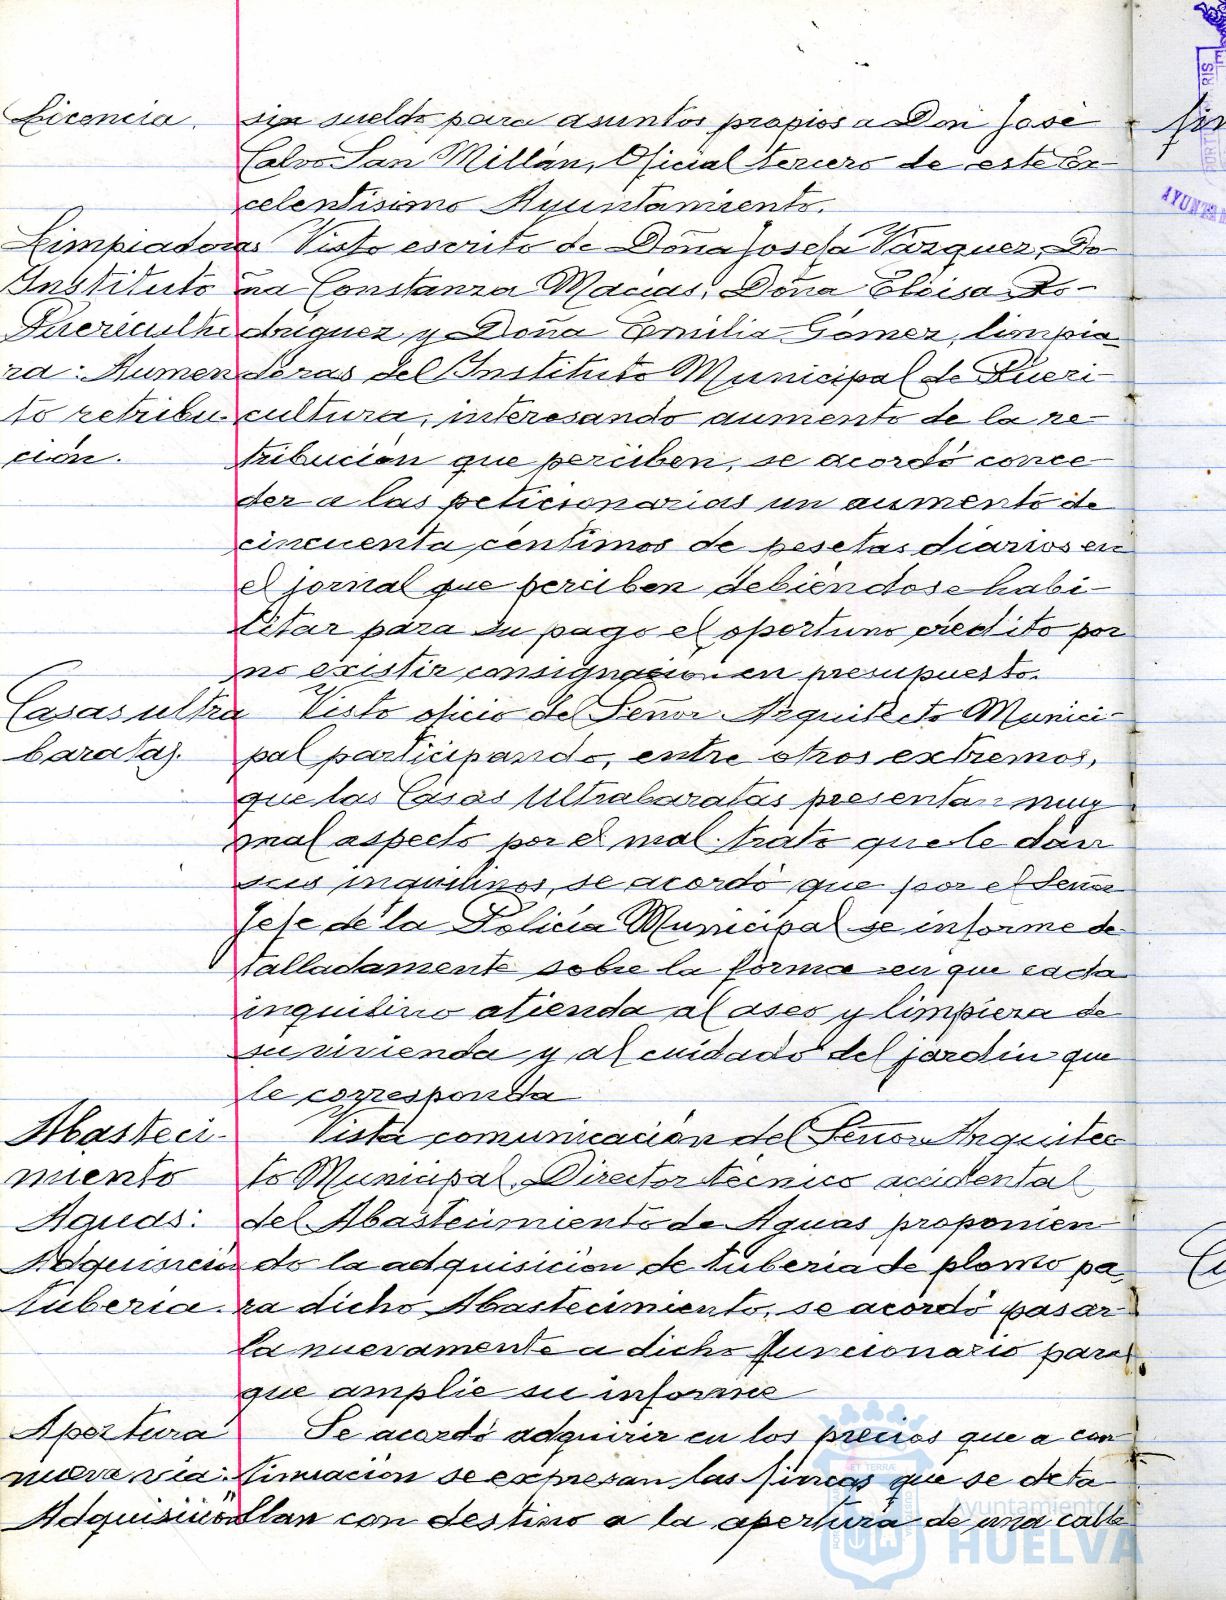 Licencia. sin sueldo para asuntos propios a Don José
Calvo San Millán, Oficial tercero de este Ex-
celentisimo Ayuntamiento.
Limpiadoras Visto escrito de Doña Josefa Vázquez, Do-
Instituto ña Constanza Macías, Doña Eloisa Ro-
Puericultu driguez y Doña Emilia Gómez, limpia
ra: Aumen doras del Instituto Municipal de Pueri-
to retribu- cultura, interesando aumento de la re-
ción. tribución que perciben, se acordó conce-
der a las peticionarias un aumento de
cincuenta céntimos de pesetas diarios en
el jornal que perciben debiéndose habi-
litar para su pago el oportuno crédito por
no existir consignación en presupuesto.
Casas ultra Visto oficio del Señor Arquitecto Munici-
baratas. pal participando, entre otros extremos,
que las Casas Ultrabaratas presentan muy
mal aspecto por el mal trato que le dán
sus inquilinos, se acordó que por el Señor
Jefe de la Policía Municipal se informe de-
talladamente sobre la forma en que cada
inquilino atienda al aseo y limpieza de
su vivienda y al cuidado del jardin que
le corresponda
Abasteci- Vista comunicación del Señor Arquitec
miento to Municipal, Director técnico accidental
Aguas: del Abastecimiento de Aguas proponien-
Adquisición do la adquisición de tuberia de plomo pa
tuberia. ra dicho Abastecimiento, se acordó pasar
la nuevamente a dicho funcionario para
que amplie su informe
Apertura Se acordó adquirir en los precios que a con
nueva via: tinuación se expresan las fincas que se deta
Adquisición llan con destino a la apertura de una calle
Ayuntamiento
HUELVA